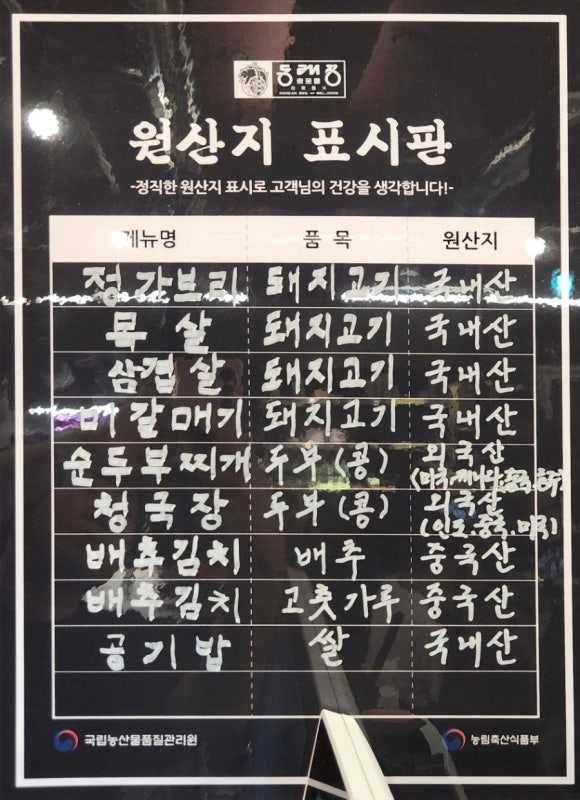 동래정
KOREAN BBQ
원산지 표시판
-정직한 원산지 표시로 고객님의 건강을 생각합니다!-
메뉴명 품 목 원산지
정가브리 돼지고기 국내산
목살 돼지고기 국내산
삼겹살 돼지고기 국내산
미갈매기 돼지고기 국내산
순두부찌개 두부(콩) 외국산
(미국.캐나다.중국.호주)
청국장 두부(콩) 외국산
(인도.중국.미국)
배추김치 배추 중국산
배추김치 고춧가루 중국산
공기밥 쌀 국내산
국립농산물품질관리원 농림축산식품부